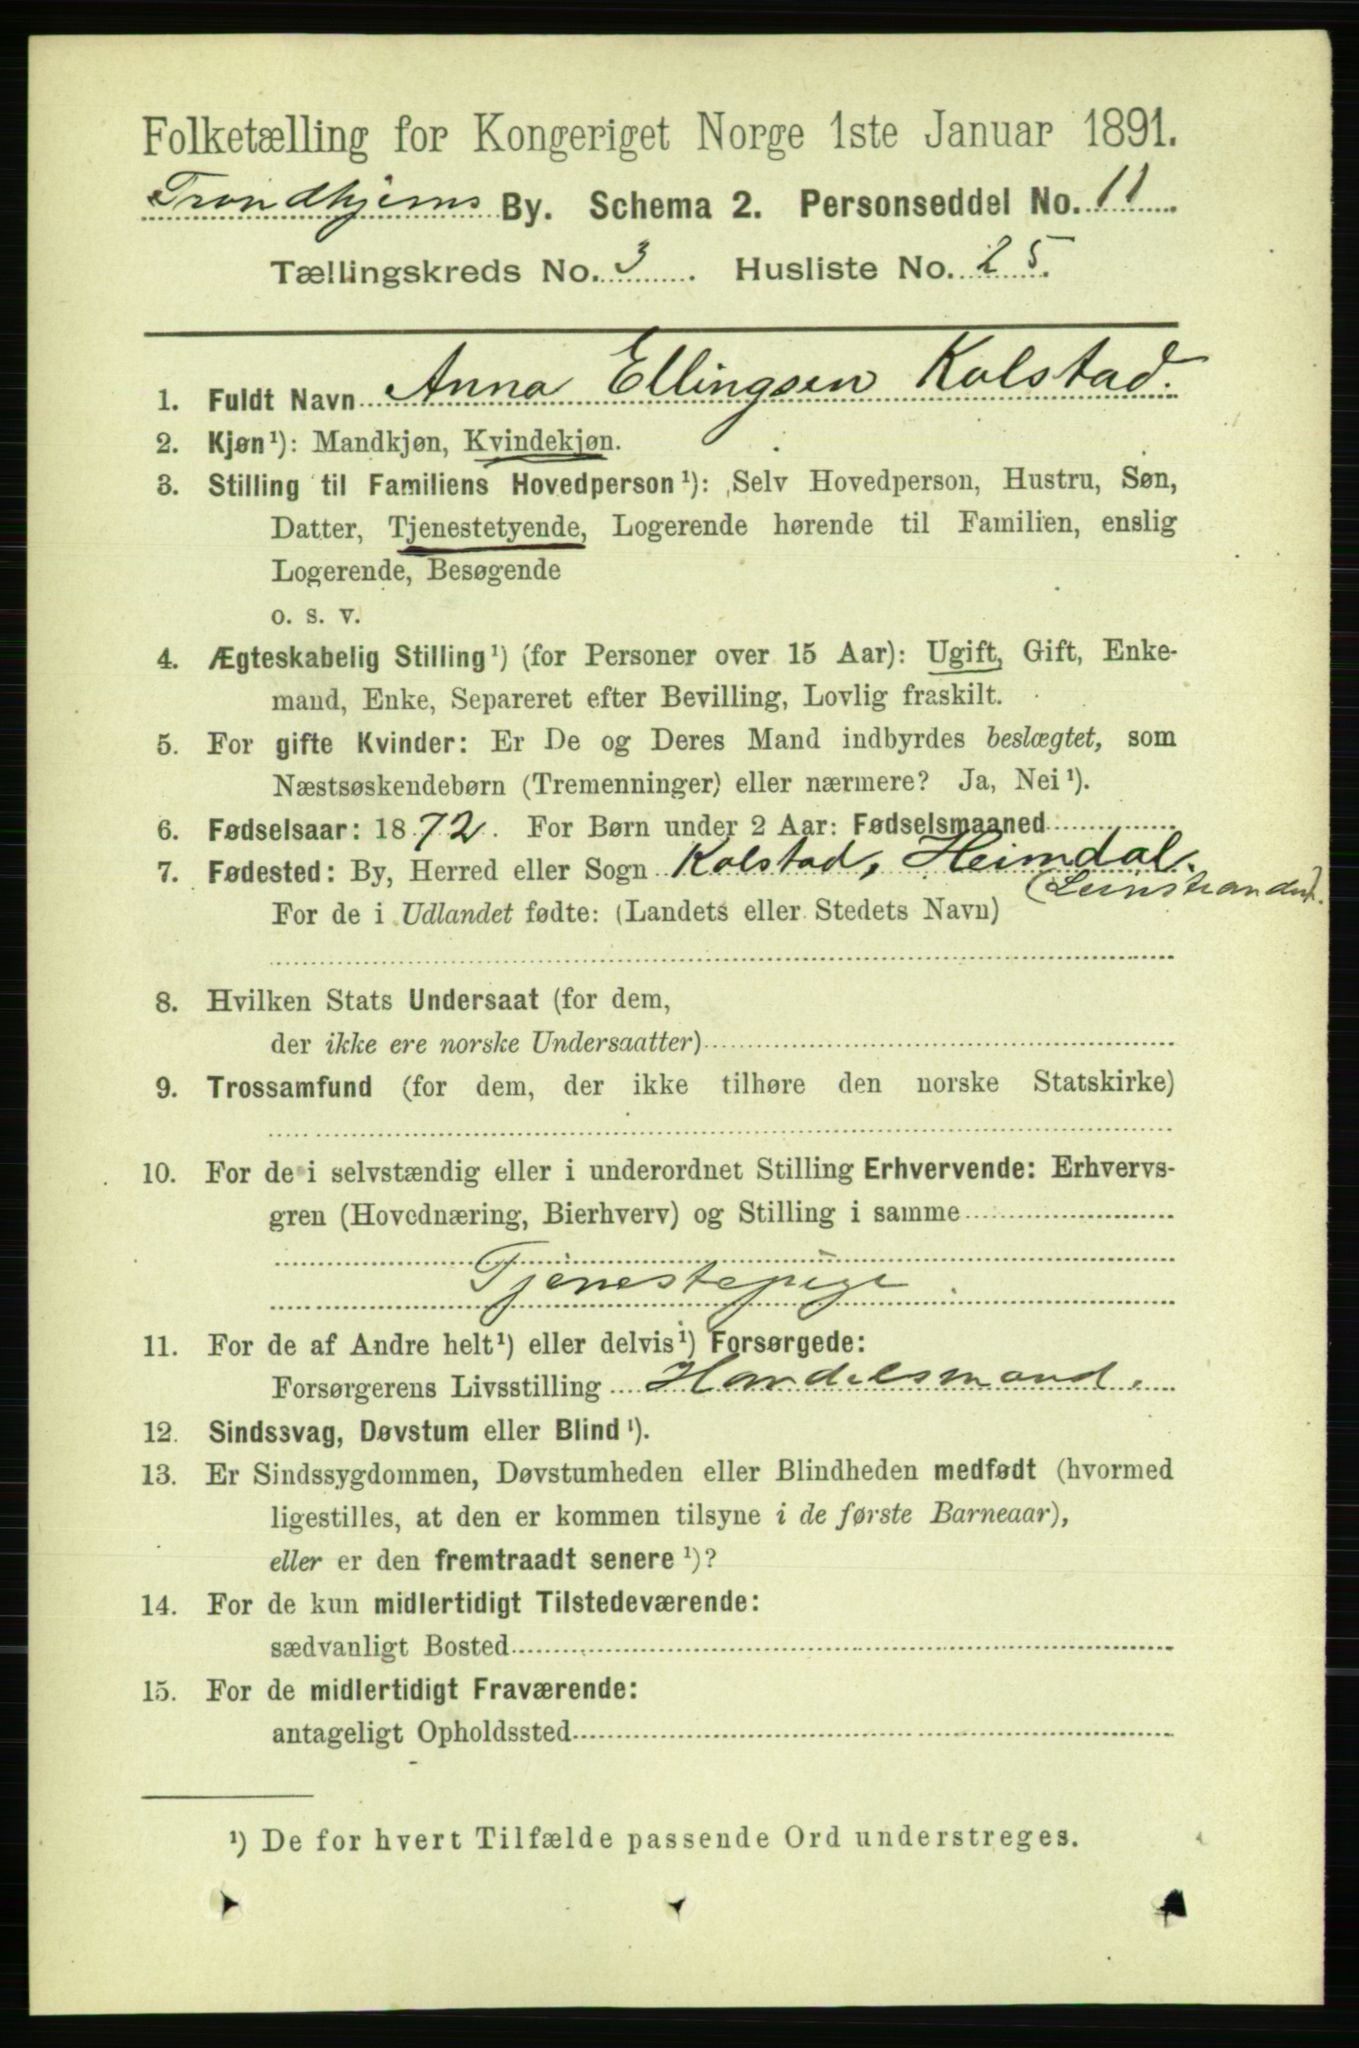 Folketælling for Kongeriget Norge 1ste Januar 1891.
Trondhjems By. Schema 2. Personseddel No. 11
Tællingskreds No. 3 Husliste No. 25.
1. Fuldt Navn Anna Ellingsen Kolstad.
2. Kjøn¹): Mandkjøn, Kvindekjøn.
3. Stilling til Familiens Hovedperson¹): Selv Hovedperson, Hustru, Søn,
Datter, Tjenestetyende, Logerende hørende til Familien, enslig
Logerende, Besøgende
o. s. v.
4. Ægteskabelig Stilling¹) (for Personer over 15 Aar): Ugift, Gift, Enke-
mand, Enke, Separeret efter Bevilling, Lovlig fraskilt.
5. For gifte Kvinder: Er De og Deres Mand indbyrdes beslægtet, som
Næstsøskendebørn (Tremenninger) eller nærmere? Ja, Nei¹).
6. Fødselsaar: 1872. For Børn under 2 Aar: Fødselsmaaned
7. Fødested: By, Herred eller Sogn Kolstad, Heimdal.
For de i Udlandet fødte: (Landets eller Stedets Navn)
8. Hvilken Stats Undersaat (for dem,
der ikke ere norske Undersaatter)
9. Trossamfund (for dem, der ikke tilhøre den norske Statskirke)
10. For de i selvstændig eller i underordnet Stilling Erhvervende: Erhvervs-
gren (Hovednæring, Bierhverv) og Stilling i samme
Tjenestepige
11. For de af Andre helt¹) eller delvis¹) Forsørgede:
Forsørgerens Livsstilling Handelsmand.
12. Sindssvag, Døvstum eller Blind¹).
13. Er Sindssygdommen, Døvstumheden eller Blindheden medfødt (hvormed
ligestilles, at den er kommen tilsyne i de første Barneaar),
eller er den fremtraadt senere¹)?
14. For de kun midlertidigt Tilstedeværende:
sædvanligt Bosted
15. For de midlertidigt Fraværende:
antageligt Opholdssted
¹) De for hvert Tilfælde passende Ord understreges.